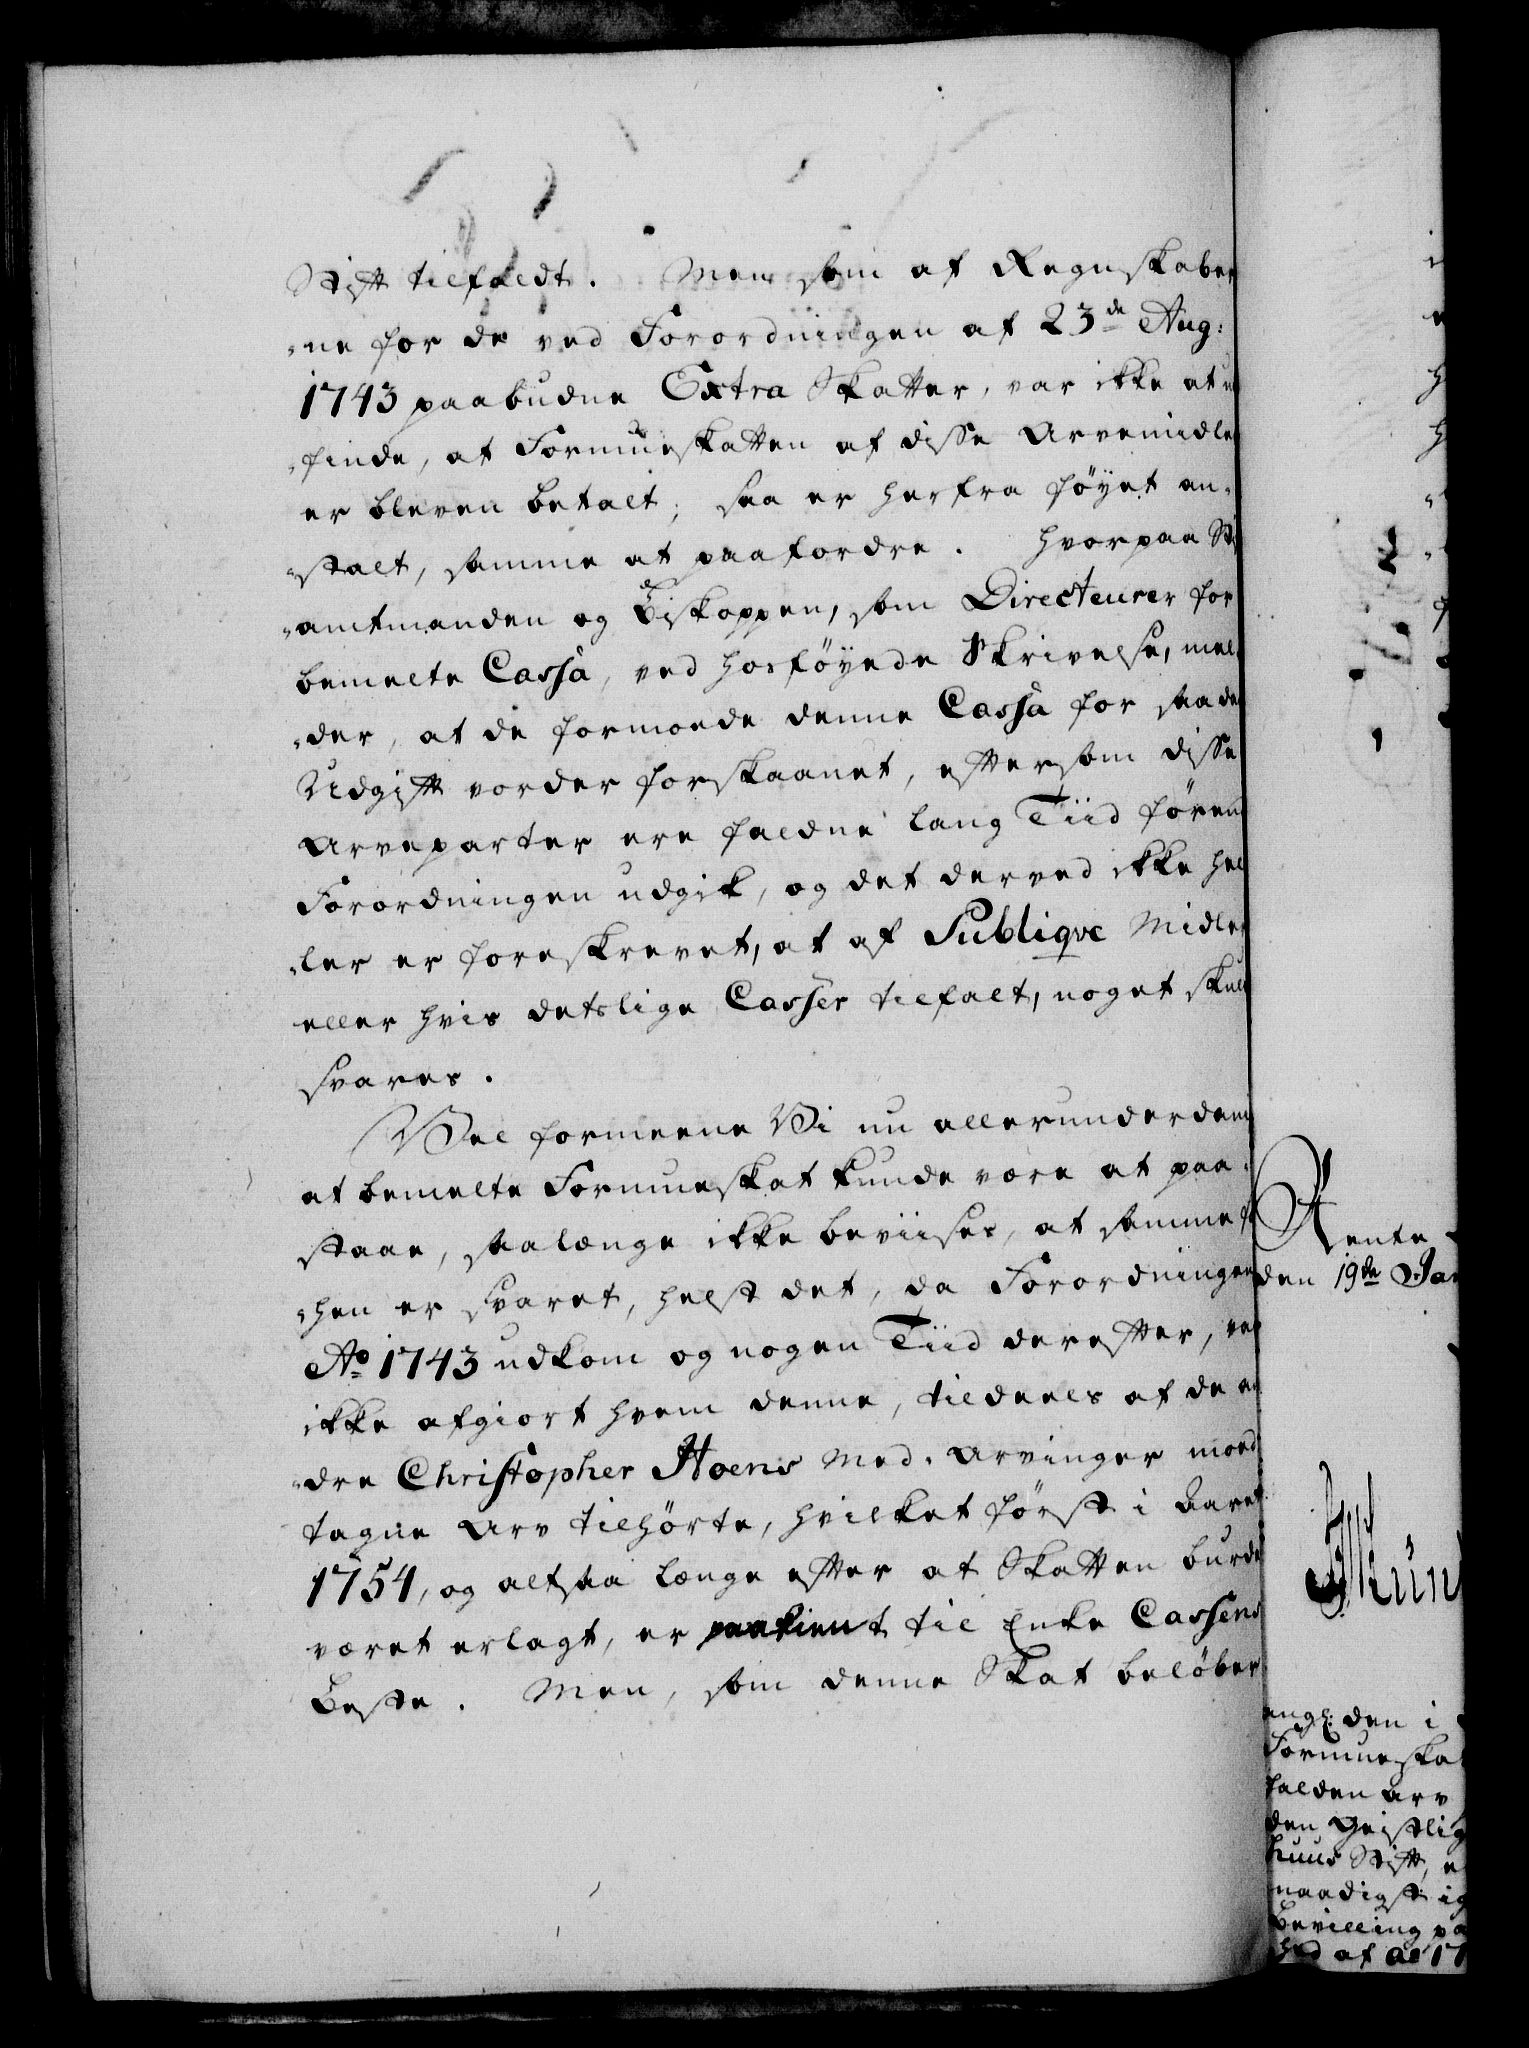 Stift tilfaldt. Men som af Regnskaber-
-ne for de ved Forordningen af 23de Aug:
1743 paabudne Extra Skatter, var ikke at
finde, at Formueskatten af disse Arvemidler
er bleven betalt; saa er herfra föyet an-
-stalt, samme at paafordre. Hvorpaa
-amtmanden og Biskoppen, som Directeurer for
bemelte Cassa, ved hosföyede Skrivelse, mel-
-der, at de formoede denne Cassa for saadan
Udgift vorder forskaanet, eftersom disse
Arveparter ere faldne lang Tiid förend
Forordningen udgik, og det derved ikke hel
-ler er foreskrevet, at af Publiqve Midler
eller hvis detslige Casser tilfalt, noget skulle
svares.
Vel formeene Vi nu allerunderdanigst
at bemelte Formueskat kunde være at paa-
staae, saalænge ikke beviises, at samme
-hen er svaret, helst det, da Forordningen
Ao 1743 udkom og nogen Tiid derefter, var
ikke afgiort hvem denne, tildeels af de an
-dre Christopher Hoens Med-Arvinger mod
tagne Arv tilhörte, hvilket först i Aaret
1754, og altsaa længe efter at Skatten burde
været erlagt, er paakient til Enke Cassens
Beste. Men, som denne Skat belöber
Rente
den 19de Jan
engl: den i
Formueska
falden Arv
den Geistlig
huus Stift,
naadigst
Bevilling
hed af Ao 17